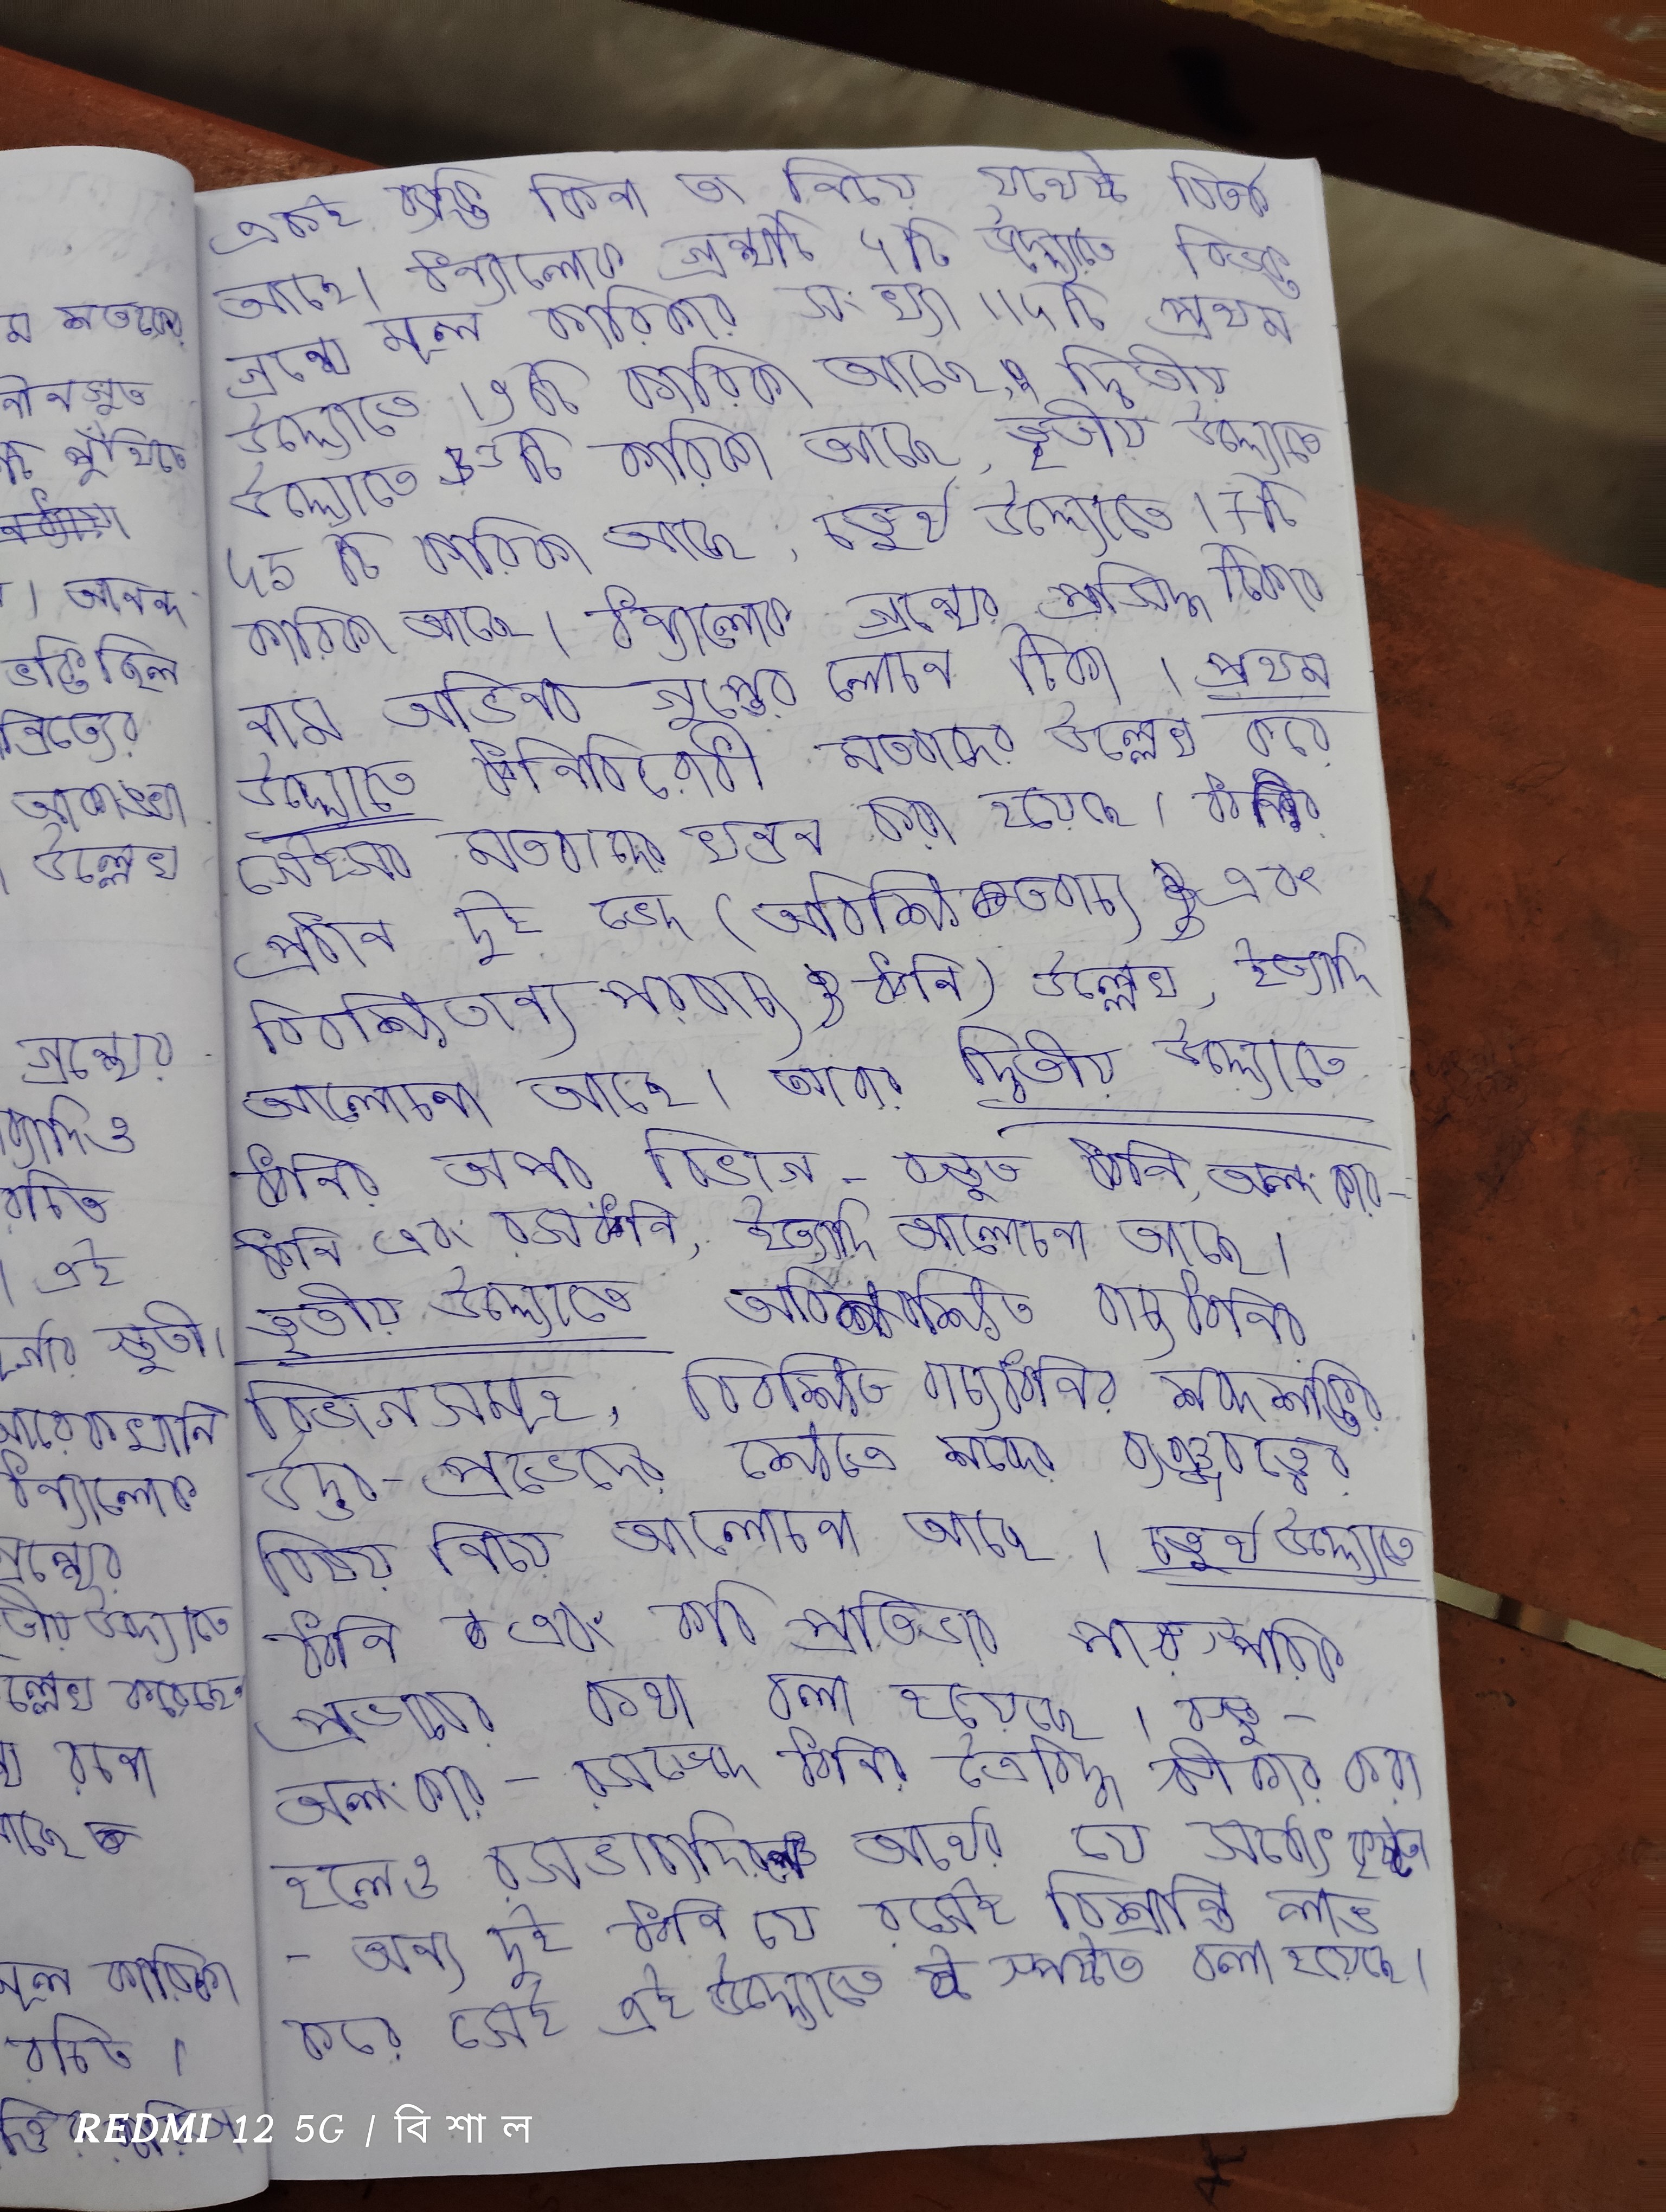 ম শতকের
নীনসুত
টি পুঁথিতে
। আনন্দ
ভট্টি ছিল
আকাঙ্খা
। উল্লেখ
গ্রন্থের
রচিত
। এই
স্তুতী।
ধ্বন্যালোক
গ্রন্থের
তীয় উদ্যোতে
ল্লেখ করেছেন
রচনা
মূল কারিকা
রচিত ।
একই ব্যক্তি কিনা তা নিয়ে যথেষ্ট বিতর্ক
আছে। ধ্বন্যালোক গ্রন্থটি ৫টি উদ্দ্যোতে বিভক্ত
গ্রন্থে মূল কারিকার সংখ্যা ।।৫টি প্রথম
উদ্দ্যোতে 19টি কারিকা আছে, দ্বিতীয়
উদ্দ্যোতে 33টি কারিকা আছে, তৃতীয় উদ্দ্যোতে
45 টি কারিকা আছে, চতুর্থ উদ্দ্যোতে 17টি
কারিকা আছে। ধ্বন্যালোক গ্রন্থের প্রসিদ্ধ টিকার
নাম অভিনব গুপ্তের লোচন টিকা । প্রথম
উদ্দ্যোতে ধ্বনিবিরোধী মতবাদের উল্লেখ করে
সেইসব মতবাদের খন্ডন করা হয়েছে। ধ্বনির
প্রধান দুই ভেদ (অবিক্ষিতবাচ্য এবং
বিবক্ষিতান্য পরবাচ্য ধ্বনি) উল্লেখ, ইত্যাদি
আলোচনা আছে। আবার দ্বিতীয় উদ্দ্যোতে
ধ্বনির অপর বিভাগ - বস্তুত ধ্বনি, অলংকার-
ধ্বনি এবং রসধ্বনি, ইত্যাদি আলোচনা আছে।
তৃতীয় উদ্দ্যোতে অবিবক্ষিত বাচ্যধ্বনির
বিভাগসমূহ, বিবক্ষিত বাচ্যধ্বনির শব্দশক্তির
উদ্ভব-প্রভেদের ক্ষেত্রে শব্দের
বিষয় নিয়ে আলোচনা আছে । চতুর্থ উদ্দ্যোতে
ধ্বনি এবং কবি প্রতিভার পারস্পরিক
প্রভাবের কথা বলা হয়েছে । বস্তু-
অলংকার - রসভেদে ধ্বনির ত্রৈবিদ্ধ স্বীকার করা
হলেও অর্থের যে
- অন্য দুই ধ্বনি যে রসেই বিশ্রান্তি লাভ
করে সেই এই উদ্দ্যোতে স্পষ্টত বলা হয়েছে।
REDMI 12 5G | বিশাল